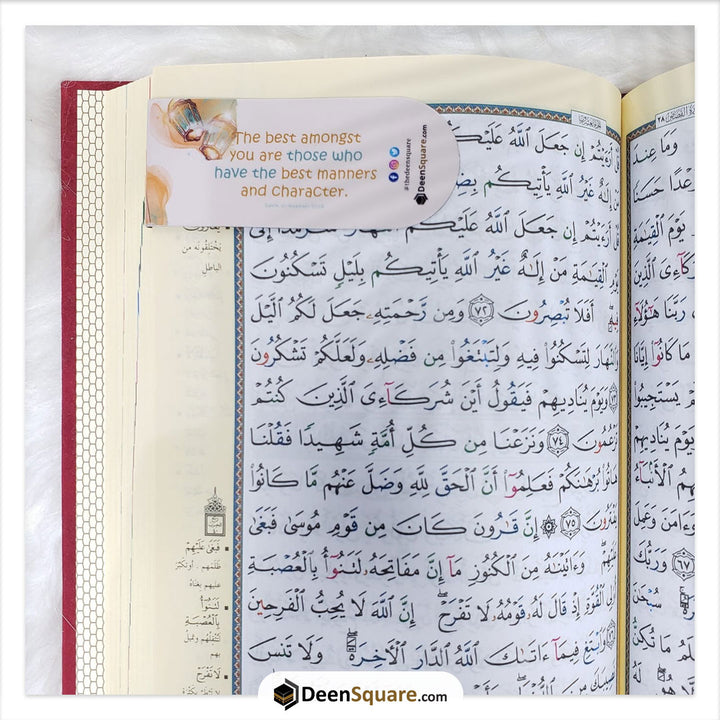 The best amongst
you are those who
have the best manners
and character.
#thedeensquare
DeenSquare.com
إِن جَعَلَ ٱللَّهُ عَلَيْكُ
إِلَٰهٌ غَيْرُ ٱللَّهِ يَأْتِيكُم
إِن جَعَلَ ٱللَّهُ عَلَيْكُمُ ٱلنَّهَارَ سَرْمَدًا إِلَىٰ
يَوْمِ ٱلْقِيَٰمَةِ مَنْ إِلَٰهٌ غَيْرُ ٱللَّهِ يَأْتِيكُم بِلَيْلٍ تَسْكُنُونَ
فِيهِ ۖ أَفَلَا تُبْصِرُونَ ٧٢ وَمِن رَّحْمَتِهِۦ جَعَلَ لَكُمُ ٱلَّيْلَ
وَٱلنَّهَارَ لِتَسْكُنُوا۟ فِيهِ وَلِتَبْتَغُوا۟ مِن فَضْلِهِۦ وَلَعَلَّكُمْ تَشْكُرُونَ
٧٣ وَيَوْمَ يُنَادِيهِمْ فَيَقُولُ أَيْنَ شُرَكَآءِىَ ٱلَّذِينَ كُنتُمْ
تَزْعُمُونَ ٧٤ وَنَزَعْنَا مِن كُلِّ أُمَّةٍ شَهِيدًا فَقُلْنَا
هَاتُوا۟ بُرْهَٰنَكُمْ فَعَلِمُوٓا۟ أَنَّ ٱلْحَقَّ لِلَّهِ وَضَلَّ عَنْهُم مَّا كَانُوا۟
يَفْتَرُونَ ٧٥ ۞ إِنَّ قَٰرُونَ كَانَ مِن قَوْمِ مُوسَىٰ فَبَغَىٰ
عَلَيْهِمْ ۖ وَءَاتَيْنَٰهُ مِنَ ٱلْكُنُوزِ مَآ إِنَّ مَفَاتِحَهُۥ لَتَنُوٓأُ بِٱلْعُصْبَةِ
أُو۟لِى ٱلْقُوَّةِ إِذْ قَالَ لَهُۥ قَوْمُهُۥ لَا تَفْرَحْ ۖ إِنَّ ٱللَّهَ لَا يُحِبُّ ٱلْفَرِحِينَ
٧٦ وَٱبْتَغِ فِيمَآ ءَاتَىٰكَ ٱللَّهُ ٱلدَّارَ ٱلْءَاخِرَةَ ۖ وَلَا تَنسَ
نَصِيبَكَ مِنَ ٱلدُّنْيَا ۖ
يختلقونه من
الباطل
فَبَغَىٰ عَلَيْهِمْ
لَتَنُوٓأُ
بِٱلْعُصْبَةِ
لَا تَفْرَحْ
وَمَا عِندَ
وَعْدًا حَسَنًا
يَوْمَ ٱلْقِيَٰمَةِ
شُرَكَآءِىَ ٱلَّذِينَ
رَبَّنَا هَٰٓؤُلَآءِ
مَا كَانُوٓا۟ إِيَّانَا
يَسْتَجِيبُوا۟
وَيَوْمَ يُنَادِيهِمْ
ٱلْأَنۢبَآءُ
وَءَامَنَ وَعَمِلَ
٦٧ وَرَبُّكَ
سُبْحَٰنَ
مَا تُكِنُّ
DeenSquare.com